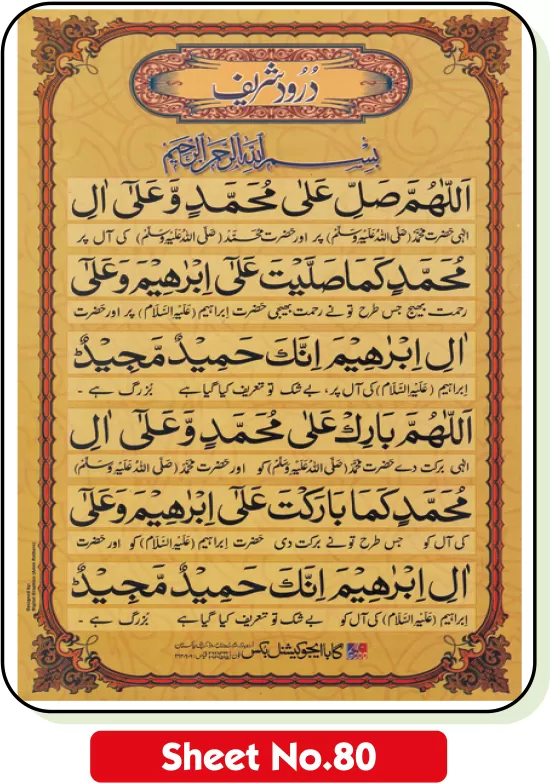 دُرُود شریف
بِسْمِ اللهِ الرَّحْمٰنِ الرَّحِيْمِ
اَللّٰهُمَّ صَلِّ عَلٰى مُحَمَّدٍ وَّ عَلٰٓى اٰلِ
الٰہی حضرت محمّد (صَلَّی اللهُ عَلَیْہِ وَسَلَّمْ) پر اور حضرت محمّد (صَلَّی اللهُ عَلَیْہِ وَسَلَّمْ) کی آل پر
مُحَمَّدٍ كَمَا صَلَّيْتَ عَلٰٓى اِبْرٰهِيْمَ وَ عَلٰٓى
رحمت بھیج جس طرح تو نے رحمت بھیجی حضرت اِبراہیم (عَلَیْہِ السَّلَام) پر اور حضرت
اٰلِ اِبْرٰهِيْمَ اِنَّكَ حَمِيْدٌ مَّجِيْدٌ
اِبراہیم (عَلَیْہِ السَّلَام) کی آل پر، بے شک تو تعریف کیا گیا ہے بُزرگ ہے ۔
اَللّٰهُمَّ بَارِكْ عَلٰى مُحَمَّدٍ وَّ عَلٰٓى اٰلِ
الٰہی برکت دے حضرت محمّد (صَلَّی اللهُ عَلَیْہِ وَسَلَّمْ) کو اور حضرت محمّد (صَلَّی اللهُ عَلَیْہِ وَسَلَّمْ)
مُحَمَّدٍ كَمَا بَارَكْتَ عَلٰٓى اِبْرٰهِيْمَ وَ عَلٰٓى
کی آل کو جس طرح تو نے برکت دی حضرت اِبراہیم (عَلَیْہِ السَّلَام) کو اور حضرت
اٰلِ اِبْرٰهِيْمَ اِنَّكَ حَمِيْدٌ مَّجِيْدٌ
اِبراہیم (عَلَیْہِ السَّلَام) کی آل کو بے شک تو تعریف کیا گیا ہے بُزرگ ہے ۔
گابا ایجوکیشنل بکس
Sheet No.80